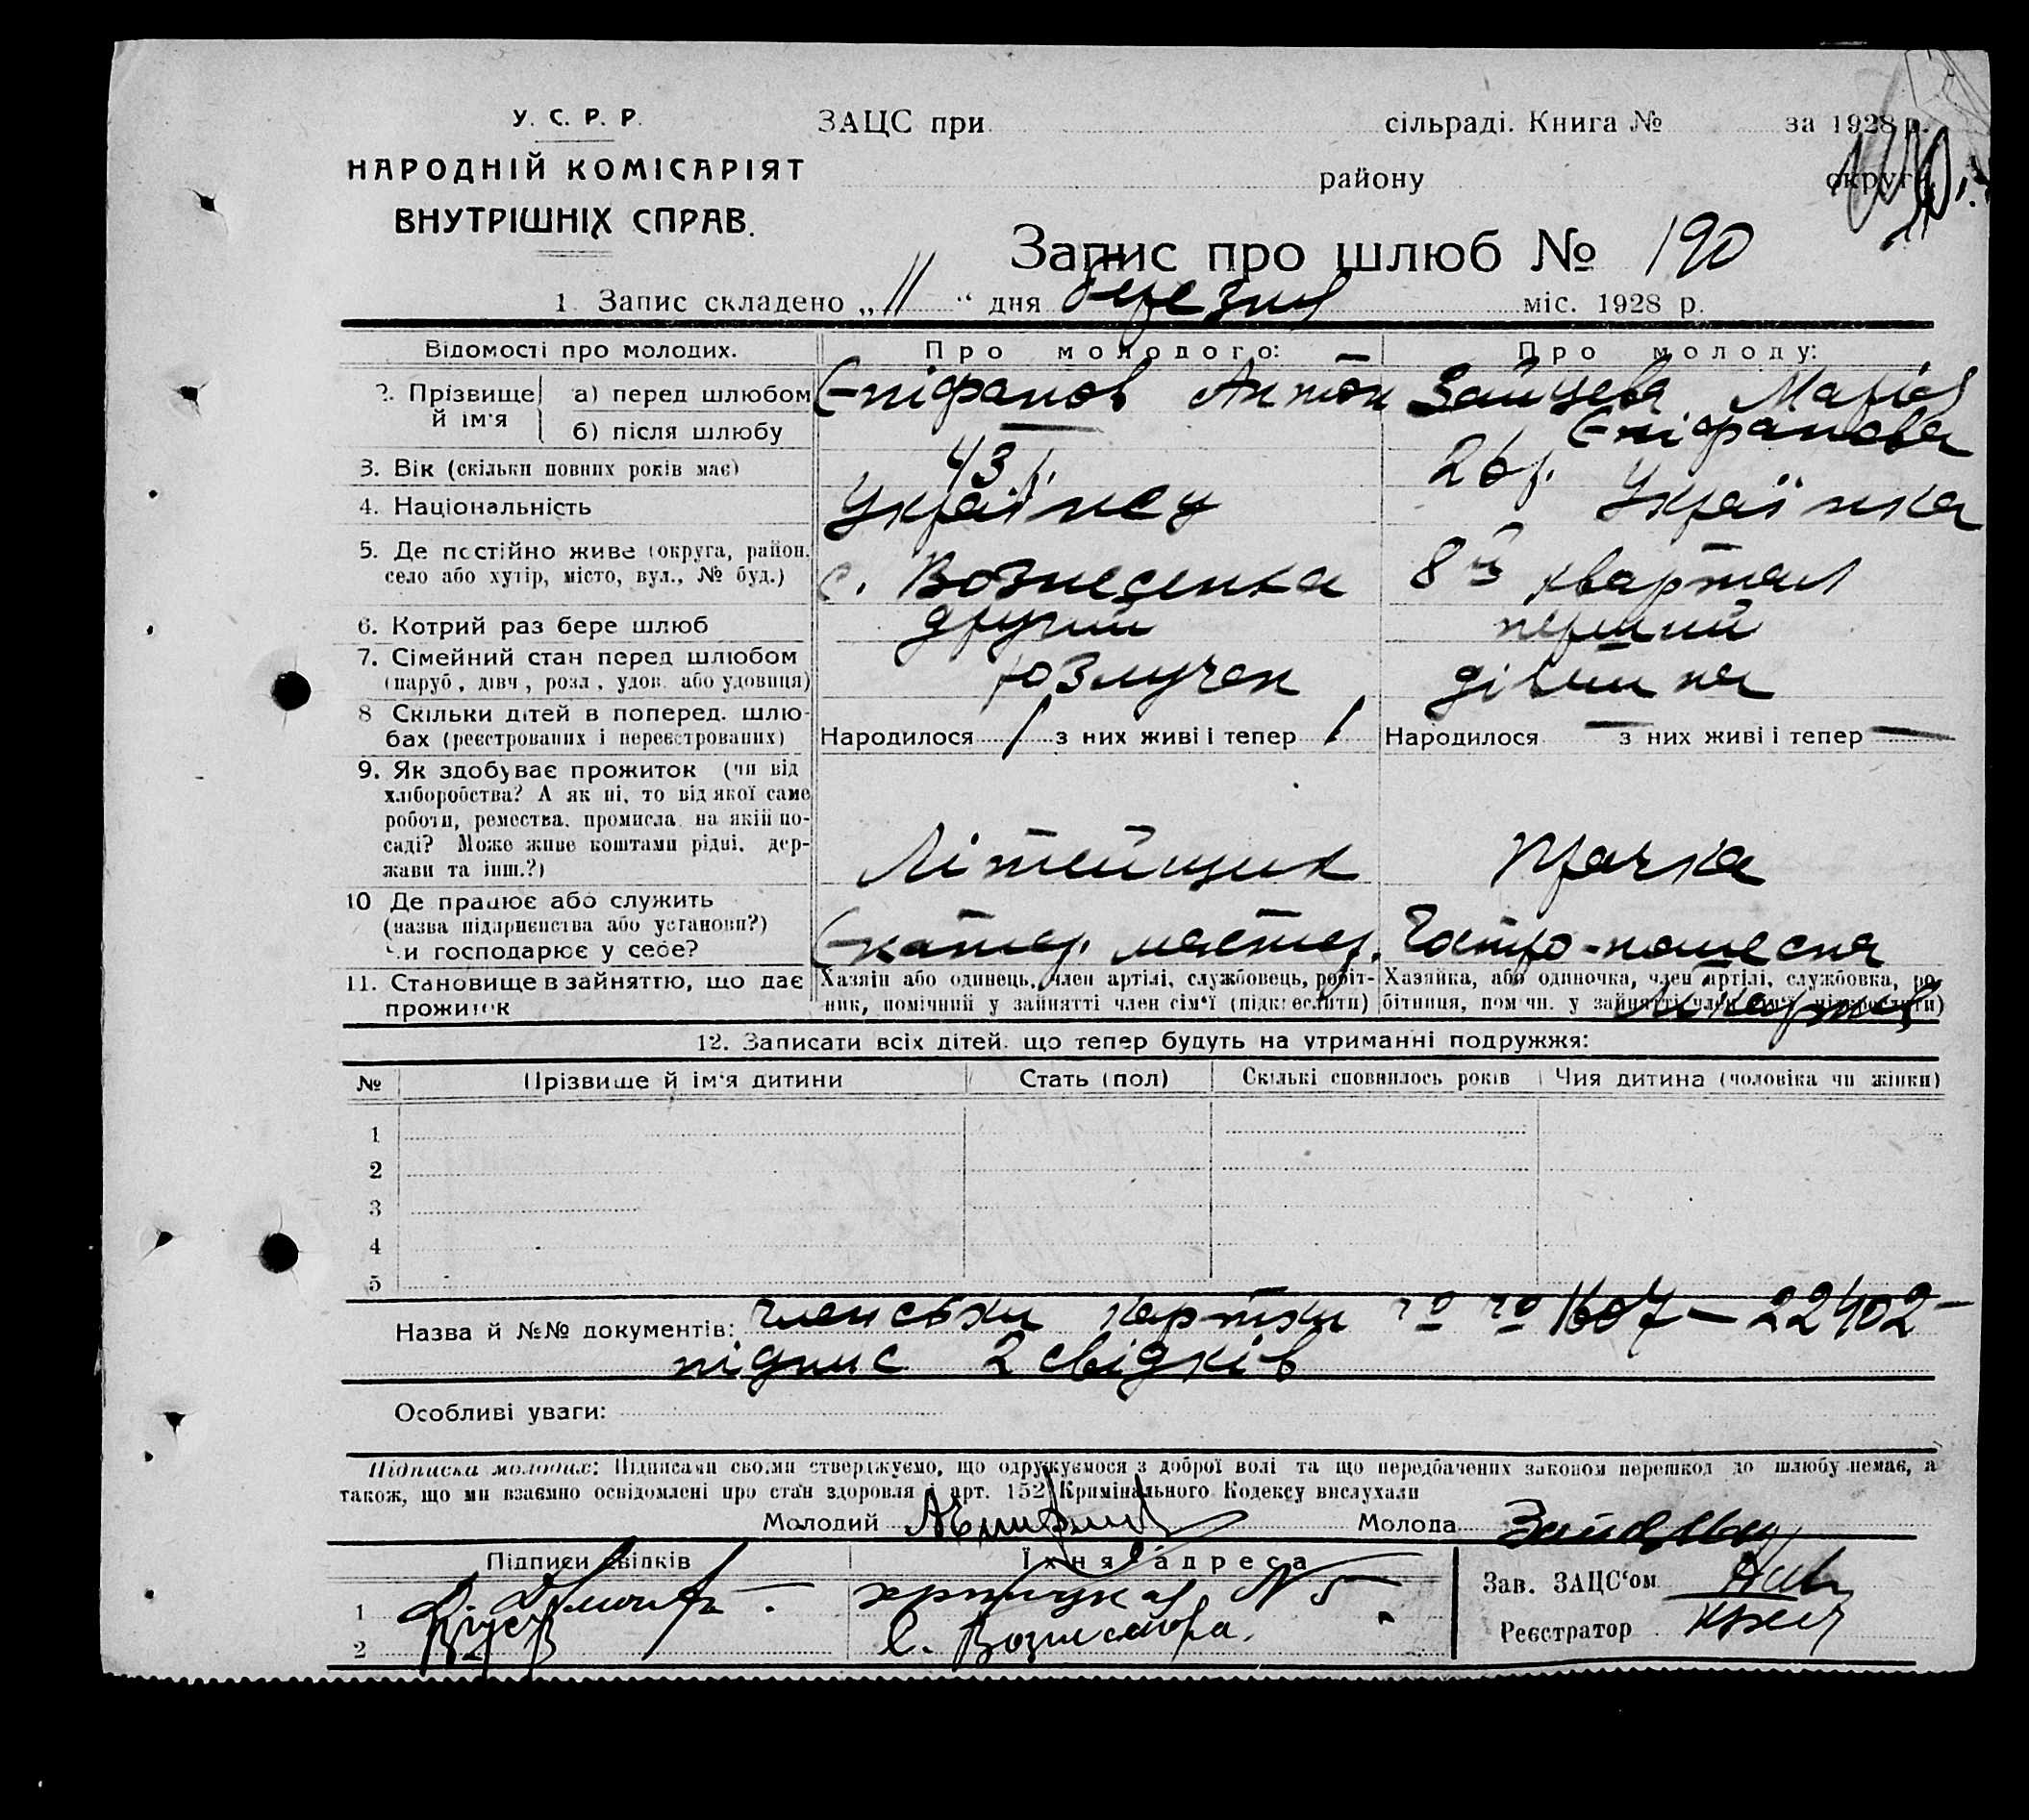 У. С. Р. Р.
НАРОДНІЙ КОМІСАРІЯТ
ВНУТРІШНІХ СПРАВ.
ЗАЦС при сільраді. Книга № за 1928 р.
району округи
Запис про шлюб № 190
1. Запис складено „11“ дня березня міс. 1928 р.
Відомості про молодих. Про молодого: Про молоду:
2. Прізвище й ім'я а) перед шлюбом Єпіфанов Антон Зайцева Марія
б) після шлюбу — Єпіфанова
3. Вік (скільки повних років має) 43 р. 26 р.
4. Національність Українец Українка
5. Де постійно живе (округа, район, село або хутір, місто, вул., № буд.) с. Вознесенка 8й квартал
6. Котрий раз бере шлюб другий перший
7. Сімейний стан перед шлюбом (паруб., дівч., розл., удов. або удовиця) розлучен дівчина
8 Скільки дітей в поперед. шлюбах (реєстрованих і нереєстрованих) Народилося 1 з них живі і тепер 1 Народилося — з них живі і тепер —
9. Як здобуває прожиток (чи від хліборобства? А як ні, то від якої саме роботи, ремества, промисла, на якій посаді? Може живе коштами рідні, держави та інш.?) Літейщик Прачка
10 Де працює або служить (назва підприємства або установи?) Чи господарює у себе? Єкатер. мастер. Гостро-пошесна лікарня
11. Становище в зайняттю, що дає прожиток Хазяїн або одинець, член артілі, службовець, робітник, помічний у зайнятті член сім'ї (підкреслити) Хазяйка, або одиночка, член артілі, службовка, робітниця, помічн. у зайнятті член сім'ї (підкреслити)
12. Записати всіх дітей, що тепер будуть на утриманні подружжя:
№ Прізвище й ім'я дитини Стать (пол) Скількі сповнилось років Чия дитина (чоловіка чи жінки)
1
2
3
4
5
Назва й №№ документів: членськи картки 1607 — 22402 —
підпис 2 свідків
Особливі уваги:
Підписка молодих: Підписами своїми стверджуємо, що одружуємося з доброї волі та що передбачених законом перешкод до шлюбу немає, а
також, що ми взаємно освідомлені про стан здоровля і арт. 152 Кримінального Кодексу вислухали
Молодий Молода Зайцева
Підписи свідків Їхня адреса
1 № 5
2 с.
Зав. ЗАЦС'ом
Реєстратор